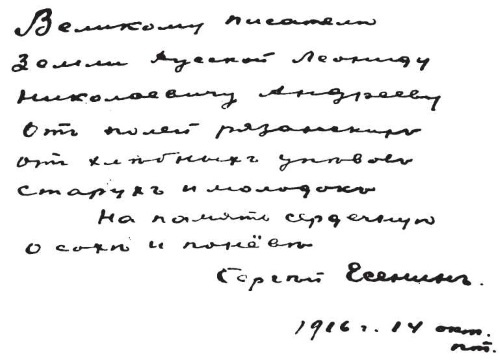 Великому писателю
Земли Русской Леониду
Николаевичу Андрееву
От полей рязанскихъ
от хлѣбныхъ упъвовъ
старухъ и молодокъ
На память сердечную
о сохѣ и понёвѣ
Сергѣй Есенинъ.
1916 г. 14 окт.
пт.